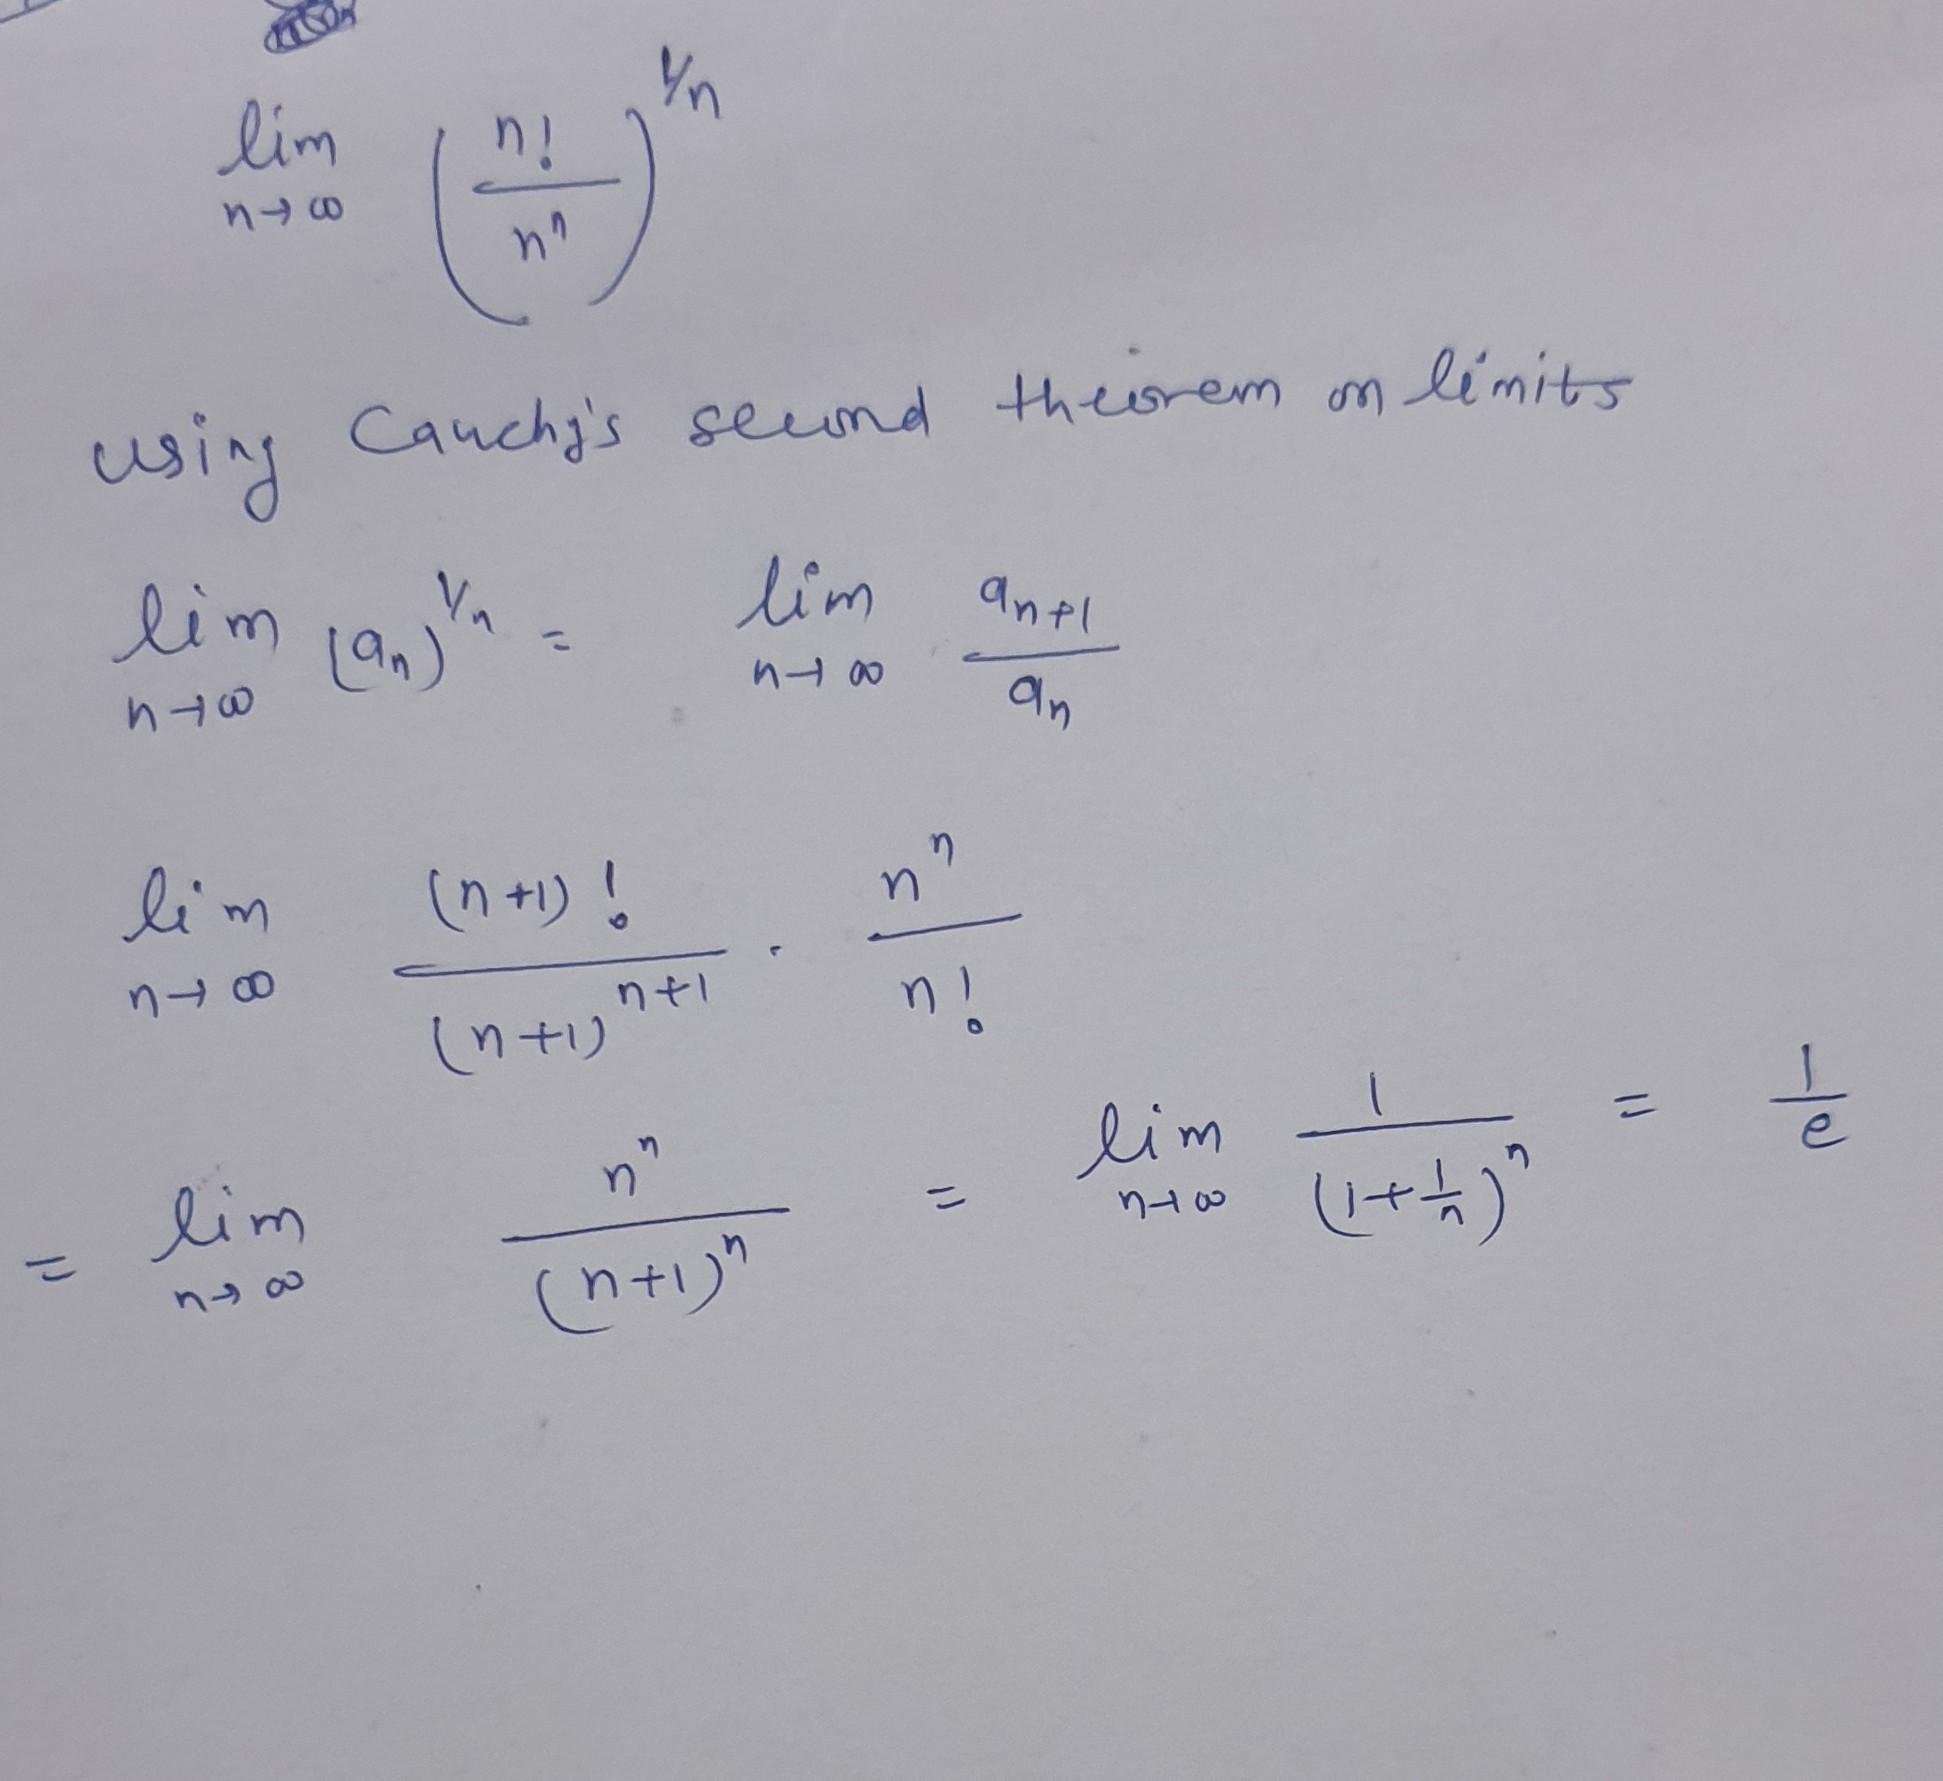 lim n→∞ (n!/nⁿ)^1/n
using Cauchy's second theorem on limits
lim n→∞ (aₙ)^1/n = lim n→∞ aₙ₊₁/aₙ
lim n→∞ (n+1)!/(n+1)ⁿ⁺¹ · nⁿ/n!
= lim n→∞ nⁿ/(n+1)ⁿ = lim n→∞ 1/(1+1/n)ⁿ = 1/e